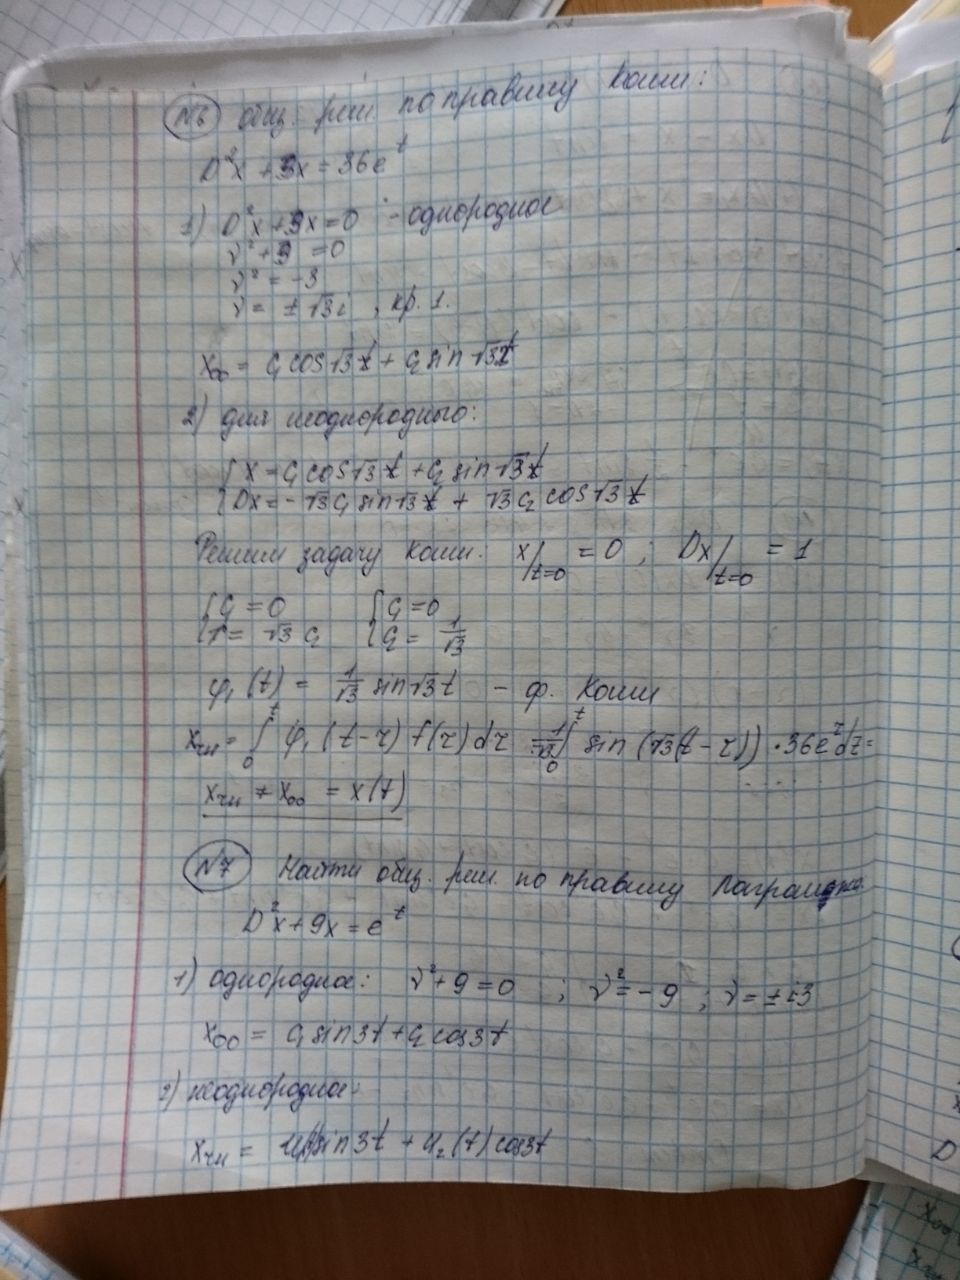 №6 общ. реш. по правилу Коши:
D²x + 3x = 36e^t
1) D²x + 3x = 0 - однородное
ν² + 3 = 0
ν² = -3
ν = ± √3i , кр. 1.
x₀₀ = C₁ cos √3 t + C₂ sin √3 t
2) для неоднородного:
{ x = C₁ cos √3 t + C₂ sin √3 t
{ Dx = - √3 C₁ sin √3 t + √3 C₂ cos √3 t
Решим задачу Коши: x/t=0 = 0 ; Dx/t=0 = 1
{ C₁ = 0 { C₁ = 0
{ 1 = √3 C₂ { C₂ = 1/√3
φ₁(t) = 1/√3 sin √3 t - ф. Коши
xчн = ∫₀^t φ₁(t-τ) f(τ) dτ = 1/√3 ∫₀^t sin(√3(t-τ)) · 36e^τ dτ =
...
xчн + x₀₀ = x(t)
№7 Найти общ. реш. по правилу Лагранжа.
D²x + 9x = e^t
1) однородное: ν² + 9 = 0 ; ν² = -9 ; ν = ± i3
x₀₀ = C₁ sin 3t + C₂ cos 3t
2) неоднородное:
xчн = u₁(t) sin 3t + u₂(t) cos 3t